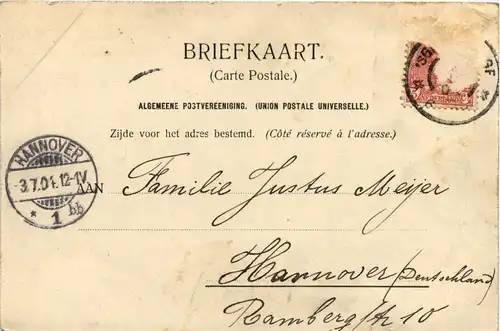 BRIEFKAART.
(Carte Postale.)
ALGEMEENE POSTVEREENIGING. (UNION POSTALE UNIVERSELLE.)
Zijde voor het adres bestemd. (Côté réservé à l'adresse.)
HANNOVER
3.7.01. 12-1V.
* 1 bb
AAN Familie Justus Meijer
Hannover (Deutschland)
Rambergstr 10